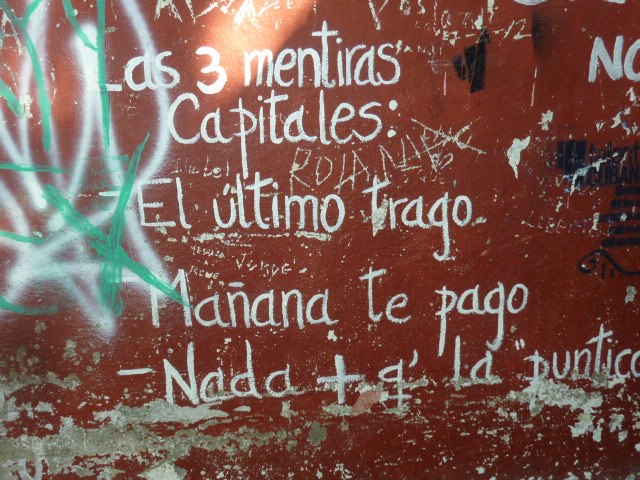 Las 3 mentiras
Capitales:
- El último trago
- Mañana te pago
- Nada + q' la "puntica
NO
ROLANDO